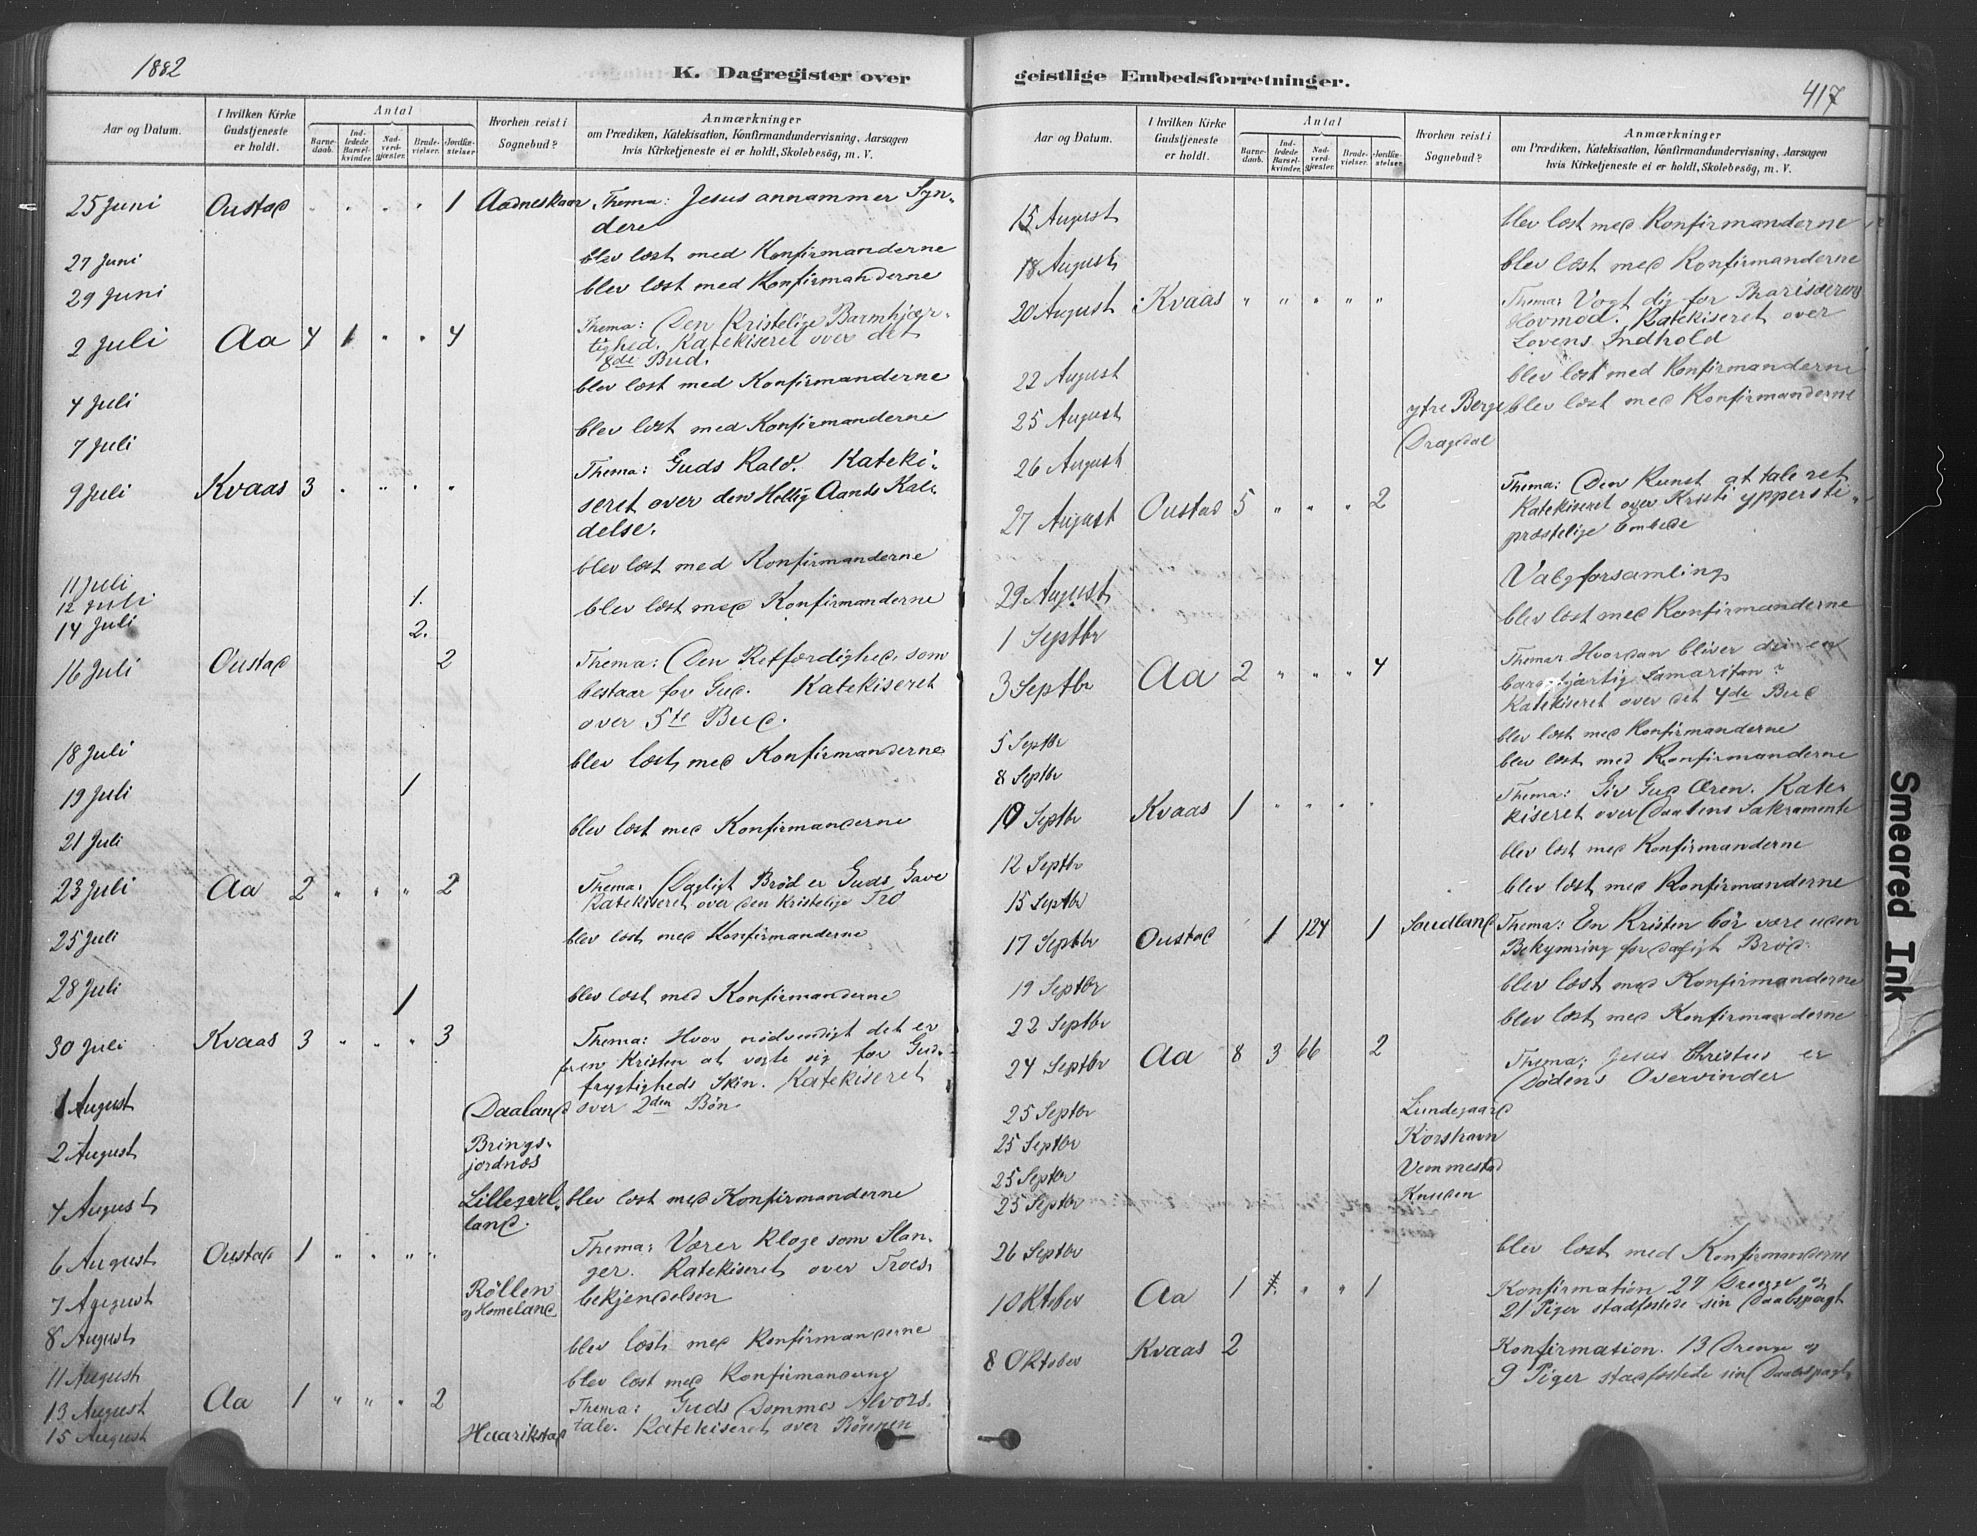 1882
K. Dagregister over
Aar og Datum.
I hvilken Kirke Gudstjeneste er holdt.
Antal
Barnedaab.
Indledede Barselkvinder.
Nadverdgjæster.
Brudevielser.
Jordfæstelser
Hvorhen reist i Sognebud?
Anmærkninger
om Prædiken, Katekisation, Konfirmandundervisning, Aarsagen
hvis Kirketjeneste ei er holdt, Skolebesøg, m. V.
25 Juni Oustad . . . . 1 Aadneskaar Thema: Jesus annammer Syn-
dere
27 Juni blev læst med Konfirmanderne
29 Juni blev læst med Konfirmanderne
2 Juli Aa 4 1 " " 4 Thema: Den Kristelige Barmhjær-
tighed. Katekiseret over det
8de Bud.
4 Juli blev læst med Konfirmanderne
7 Juli blev læst med Konfirmanderne
9 Juli Kvaas 3 . " . . Thema: Guds Kald. Kateki-
seret over den Hellig Aands Kal-
delse.
11 Juli blev læst med Konfirmanderne
12 Juli 1.
14 Juli 2. blev læst med Konfirmanderne
16 Juli Oustad 2 Thema: Den Retfærdighed, som
bestaar for Gud. Katekiseret
over 5te Bud.
18 Juli blev læst med Konfirmanderne
19 Juli 1
21 Juli blev læst med Konfirmanderne
23 Juli Aa 2 " " " 2 Thema: Dagligt Brød er Guds Gave
Katekiseret over den Kristelige Tro
25 Juli blev læst med Konfirmanderne
28 Juli 1 blev læst med Konfirmanderne
30 Juli Kvaas 3 " " " 3 Thema: Hvor nødvendigt det er
for en Kristen at vogte sig for Gud-
frygtigheds Skin. Katekiseret
1 August Daaland over 2den Bøn
2 August Brings-
jordnæs
4 August Lillegvel-
land. blev læst med Konfirmanderne
6 August Oustad 1 " " " " Thema: Værer kloge som Slan-
ger. Katekiseret over Troes-
7 August Røllen
og Homeland bekjendelsen
8 August blev læst med Konfirmanderne
11 August blev læst med Konfirmanderne
13 August Aa 1 " " " 2 Thema: Guds Dommes Alvors-
15 August Haarikstad tale. Katekiseret over Bønnen
geistlige Embedsforretninger.
417
Aar og Datum.
I hvilken Kirke Gudstjeneste er holdt.
Antal
Barnedaab.
Indledede Barselkvinder.
Nadverdgjæster.
Brudevielser.
Jordfæstelser
Hvorhen reist i Sognebud?
Anmærkninger
om Prædiken, Katekisation, Konfirmandundervisning, Aarsagen
hvis Kirketjeneste ei er holdt, Skolebesøg, m. V.
15 August blev læst med Konfirmanderne
18 August blev læst med Konfirmanderne
20 August Kvaas " " " " " Thema: Vogt dig for Pharisæerens
Hovmod. Katekiseret over
Lovens Indhold
22 August blev læst med Konfirmanderne
25 August ytre Berge blev læst med Konfirmanderne
26 August Dragedal
27 August Oustad 5 " " " 2 Thema: Den Kunst at tale ret
Katekiseret over Kristi yppersti-
præstelige Embede
29 August Valgforsamling
1 Septbr blev læst med Konfirmanderne
3 Septbr Aa 2 " " " 4 Thema: Hvordan bliver du en
barmhjærtig Samaritan?
Katekiseret over det 4de Bud
5 Septbr blev læst med Konfirmanderne
8 Septbr blev læst med Konfirmanderne
10 Septbr Kvaas 1 " " " " Thema: Giv Gud Æren. Kate-
kiseret over Daabens Sakramente
12 Septbr blev læst med Konfirmanderne
15 Septbr blev læst med Konfirmanderne
17 Septbr Oustad 1 124 1 Saudland Thema: En Kristen bør være uden
Bekymring for dagligt Brød.
19 Septbr blev læst med Konfirmanderne
22 Septbr blev læst med Konfirmanderne
24 Septbr Aa 8 3 66 2 Thema: Jesus Christus er
Dødens Overvinder
25 Septbr Lundegaard
25 Septbr Korshavn
25 Septbr Vemmestad
25 Septbr Knuden
26 Septbr blev læst med Konfirmanderne
1 Oktober Aa 1 " " 1 Konfirmation 27 Drenge og
21 Piger stadfæstede sin Daabspagt
8 Oktober Kvaas 2 Konfirmation. 13 Drenge og
9 Piger stadfæstede sin Daabspagt
Smeared Ink